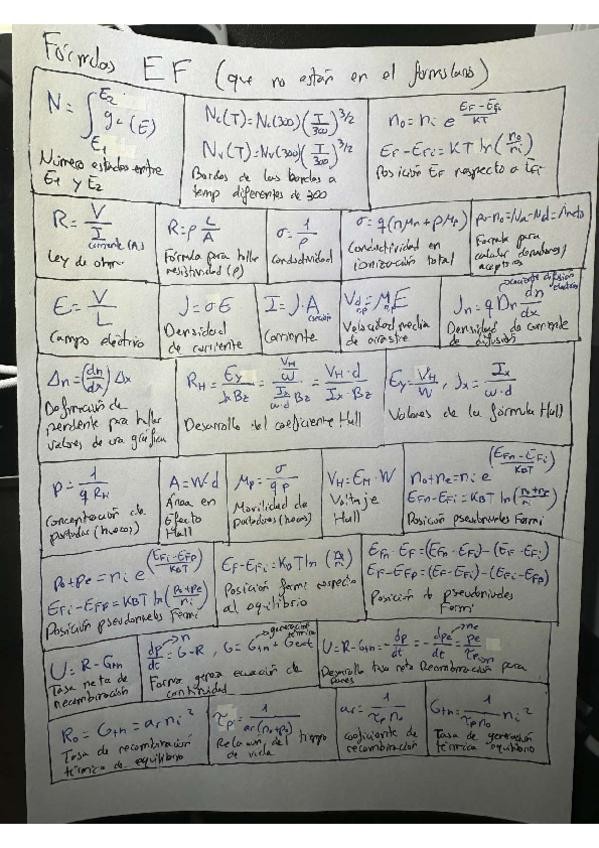 Fórmulas EF (que no están en el formulario)
N = ∫_{E1}^{E2} g_c(E)
Número estados entre
E1 y E2
Nc(T) = Nc(300)(T/300)^{3/2}
Nv(T) = Nv(300)(T/300)^{3/2}
Bordes de las bandas a
temp diferentes de 300
n0 = ni e^{(EF - EFi)/KT}
EF - EFi = KT ln(n0/ni)
Posición EF respecto a EFi
R = V/I
corriente (A)
Ley de ohm
R = ρ L/A
Fórmula para hallar
resistividad (ρ)
σ = 1/ρ
Conductividad
σ = q(nμn + pμp)
Conductividad en
ionización total
p0 - n0 = Na - Nd = Aneto
Formula para
calcular donadores/
aceptores
E = V/L
Campo eléctrico
J = σE
Densidad
de corriente
I = J·A
sección
Corriente
Vd n,p = μ n,p E
Velocidad media
de arrastre
Jn = q Dn dn/dx
Densidad de corriente
de difusión
Δn = (dn/dx) Δx
Definición de
pendiente para hallar
valores de una gráfica
RH = Ey/(Jx Bz) = (VH/w)/((Ix/(w·d)) Bz) = (VH·d)/(Ix·Bz)
Desarrollo del coeficiente Hall
Ey = VH/W, Jx = Ix/(w·d)
Valores de la fórmula Hall
p = 1/(q RH)
Concentración de
portadores (huecos)
A = W·d
Área en
Efecto
Hall
μp = σ/(q p)
Movilidad de
portadores (huecos)
VH = EH·W
Voltaje
Hall
n0 + ne = ni e^{(EFn - EFi)/KBT}
EFn - EFi = KBT ln((n0+ne)/ni)
Posición pseudonivel Fermi
p0 + pe = ni e^{(EFi - EFp)/KBT}
EFi - EFp = KBT ln((p0+pe)/ni)
Posición pseudoniveles Fermi
EF - EFi = KBT ln(n0/ni)
Posición fermi respecto
al equilibrio
EFn - EF = (EFn - EFi) - (EF - EFi)
EF - EFp = (EF - EFi) - (EFi - EFp)
Posición de pseudoniveles
Fermi
U = R - Gth
Tasa neta de
recombinación
dp/dt → n = G - R, G = Gth + Gext
generación
térmica
Forma general ecuación de
continuidad
U = R - Gth = -dp/dt = -dpe/dt = pe/τp,n
ne
Desarrollo tasa neta Recombinación para
pares
R0 = Gth = αr ni²
Tasa de recombinación
térmica de equilibrio
τp = 1/(αr(n0+p0))
Relacion del tiempo
de vida
αr = 1/(τp n0)
coeficiente de
recombinación
Gth = 1/(τp n0) ni²
Tasa de generación
térmica equilibrio